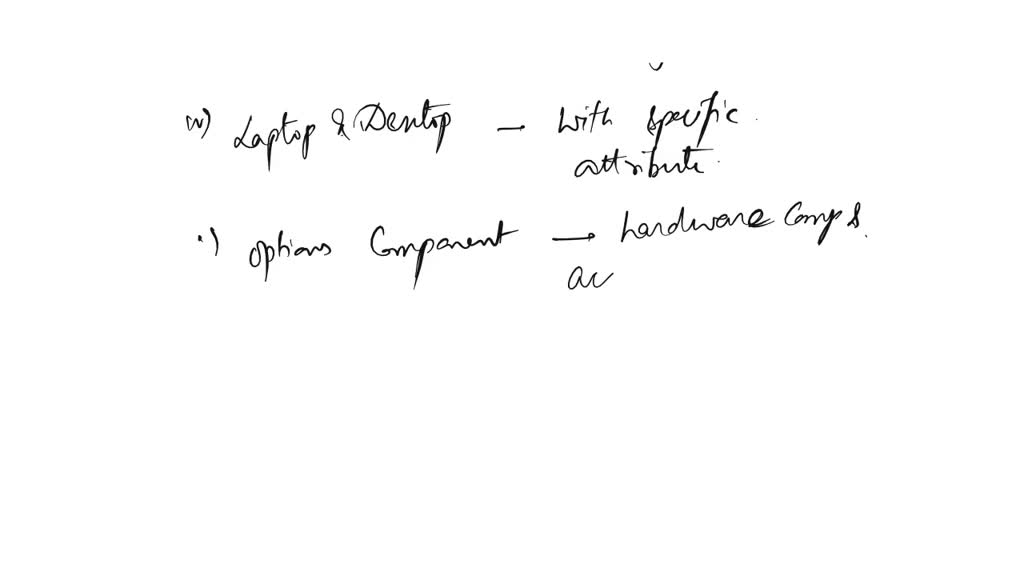 iv) Laptop & Desktop — with specific
attribute.
options Component → hardware Comps.